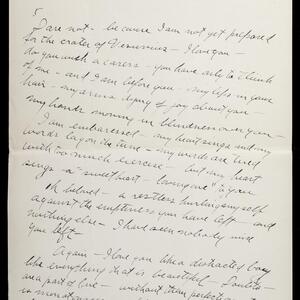 5
I dare not - because I am not yet prepared
for the crater of Vesuvius - I love you -
do you wish a caress - you have only to think
of me - and I am before you - my lips in your
hair - my arms dying of joy about you -
my hands moving in blindness over you -
I am embarrassed - my heart sings and my
words lag on the tune - my words are tired
with too much exercise - but my heart
sings - a "sweetheart - loving one" to you
Oh beloved - a restless hurling myself
against the emptiness you have left - and
nothing else - I have seen nobody since
you left
Again - I love you like a distracted boy
like everything that is beautiful
are a part of love - without them perfection
is